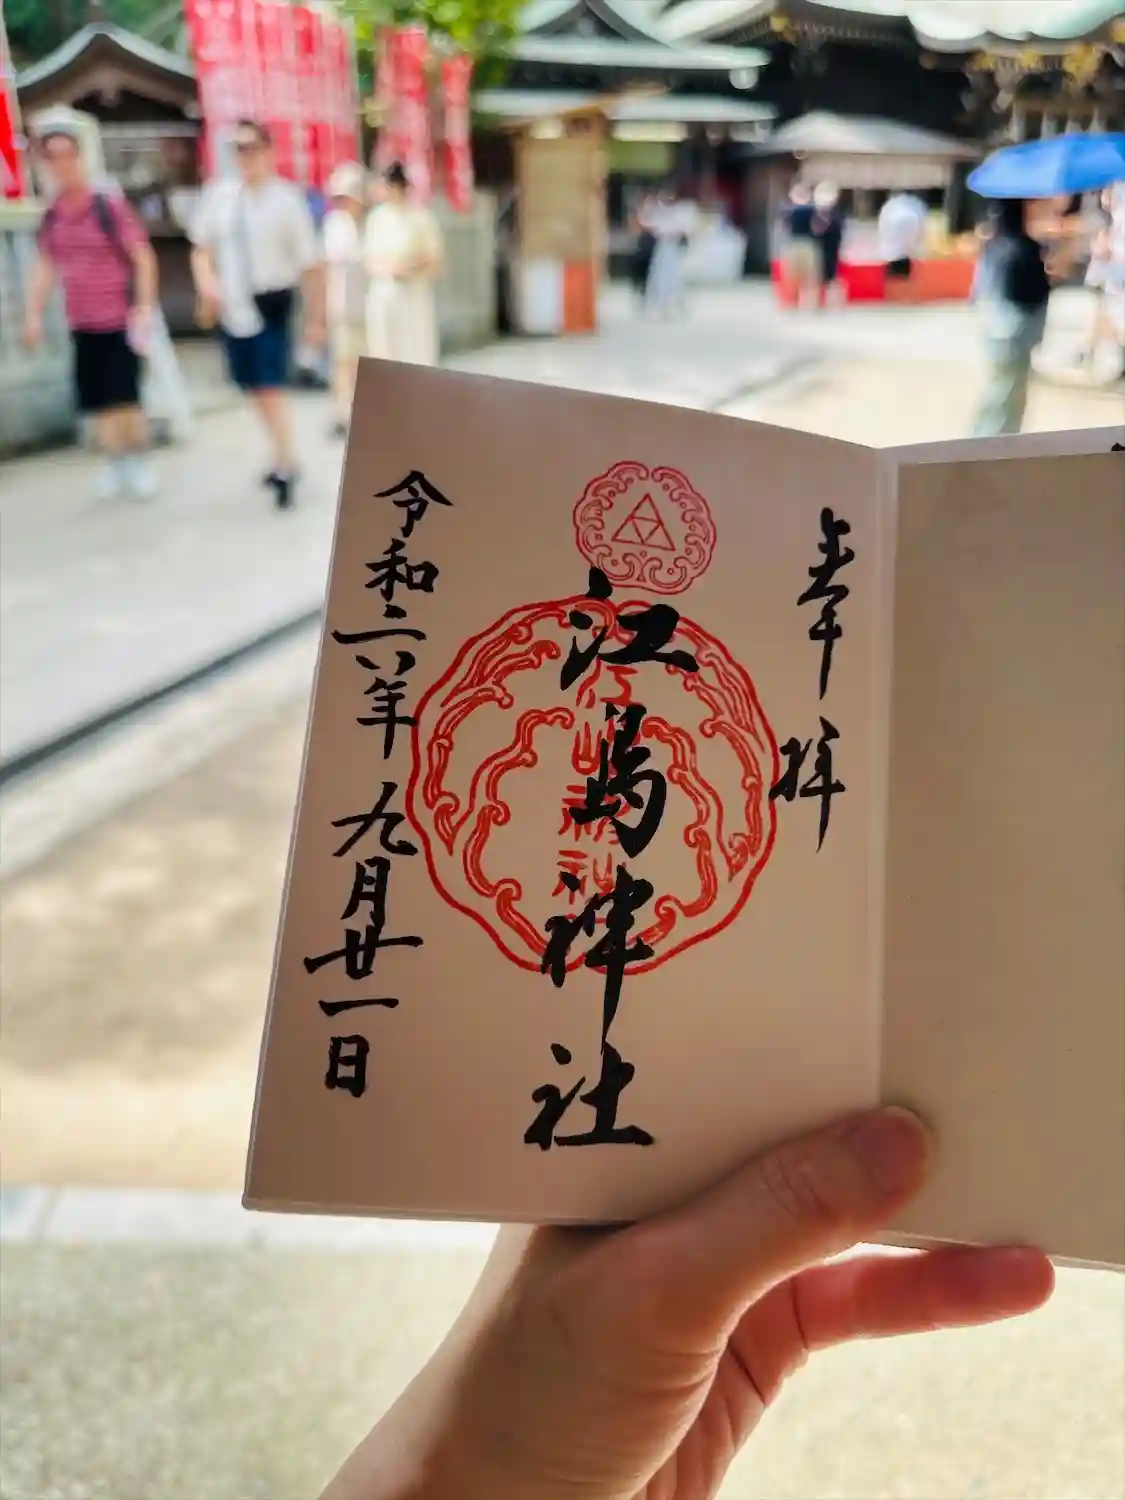 奉拝
江島神社
令和六年九月廿一日